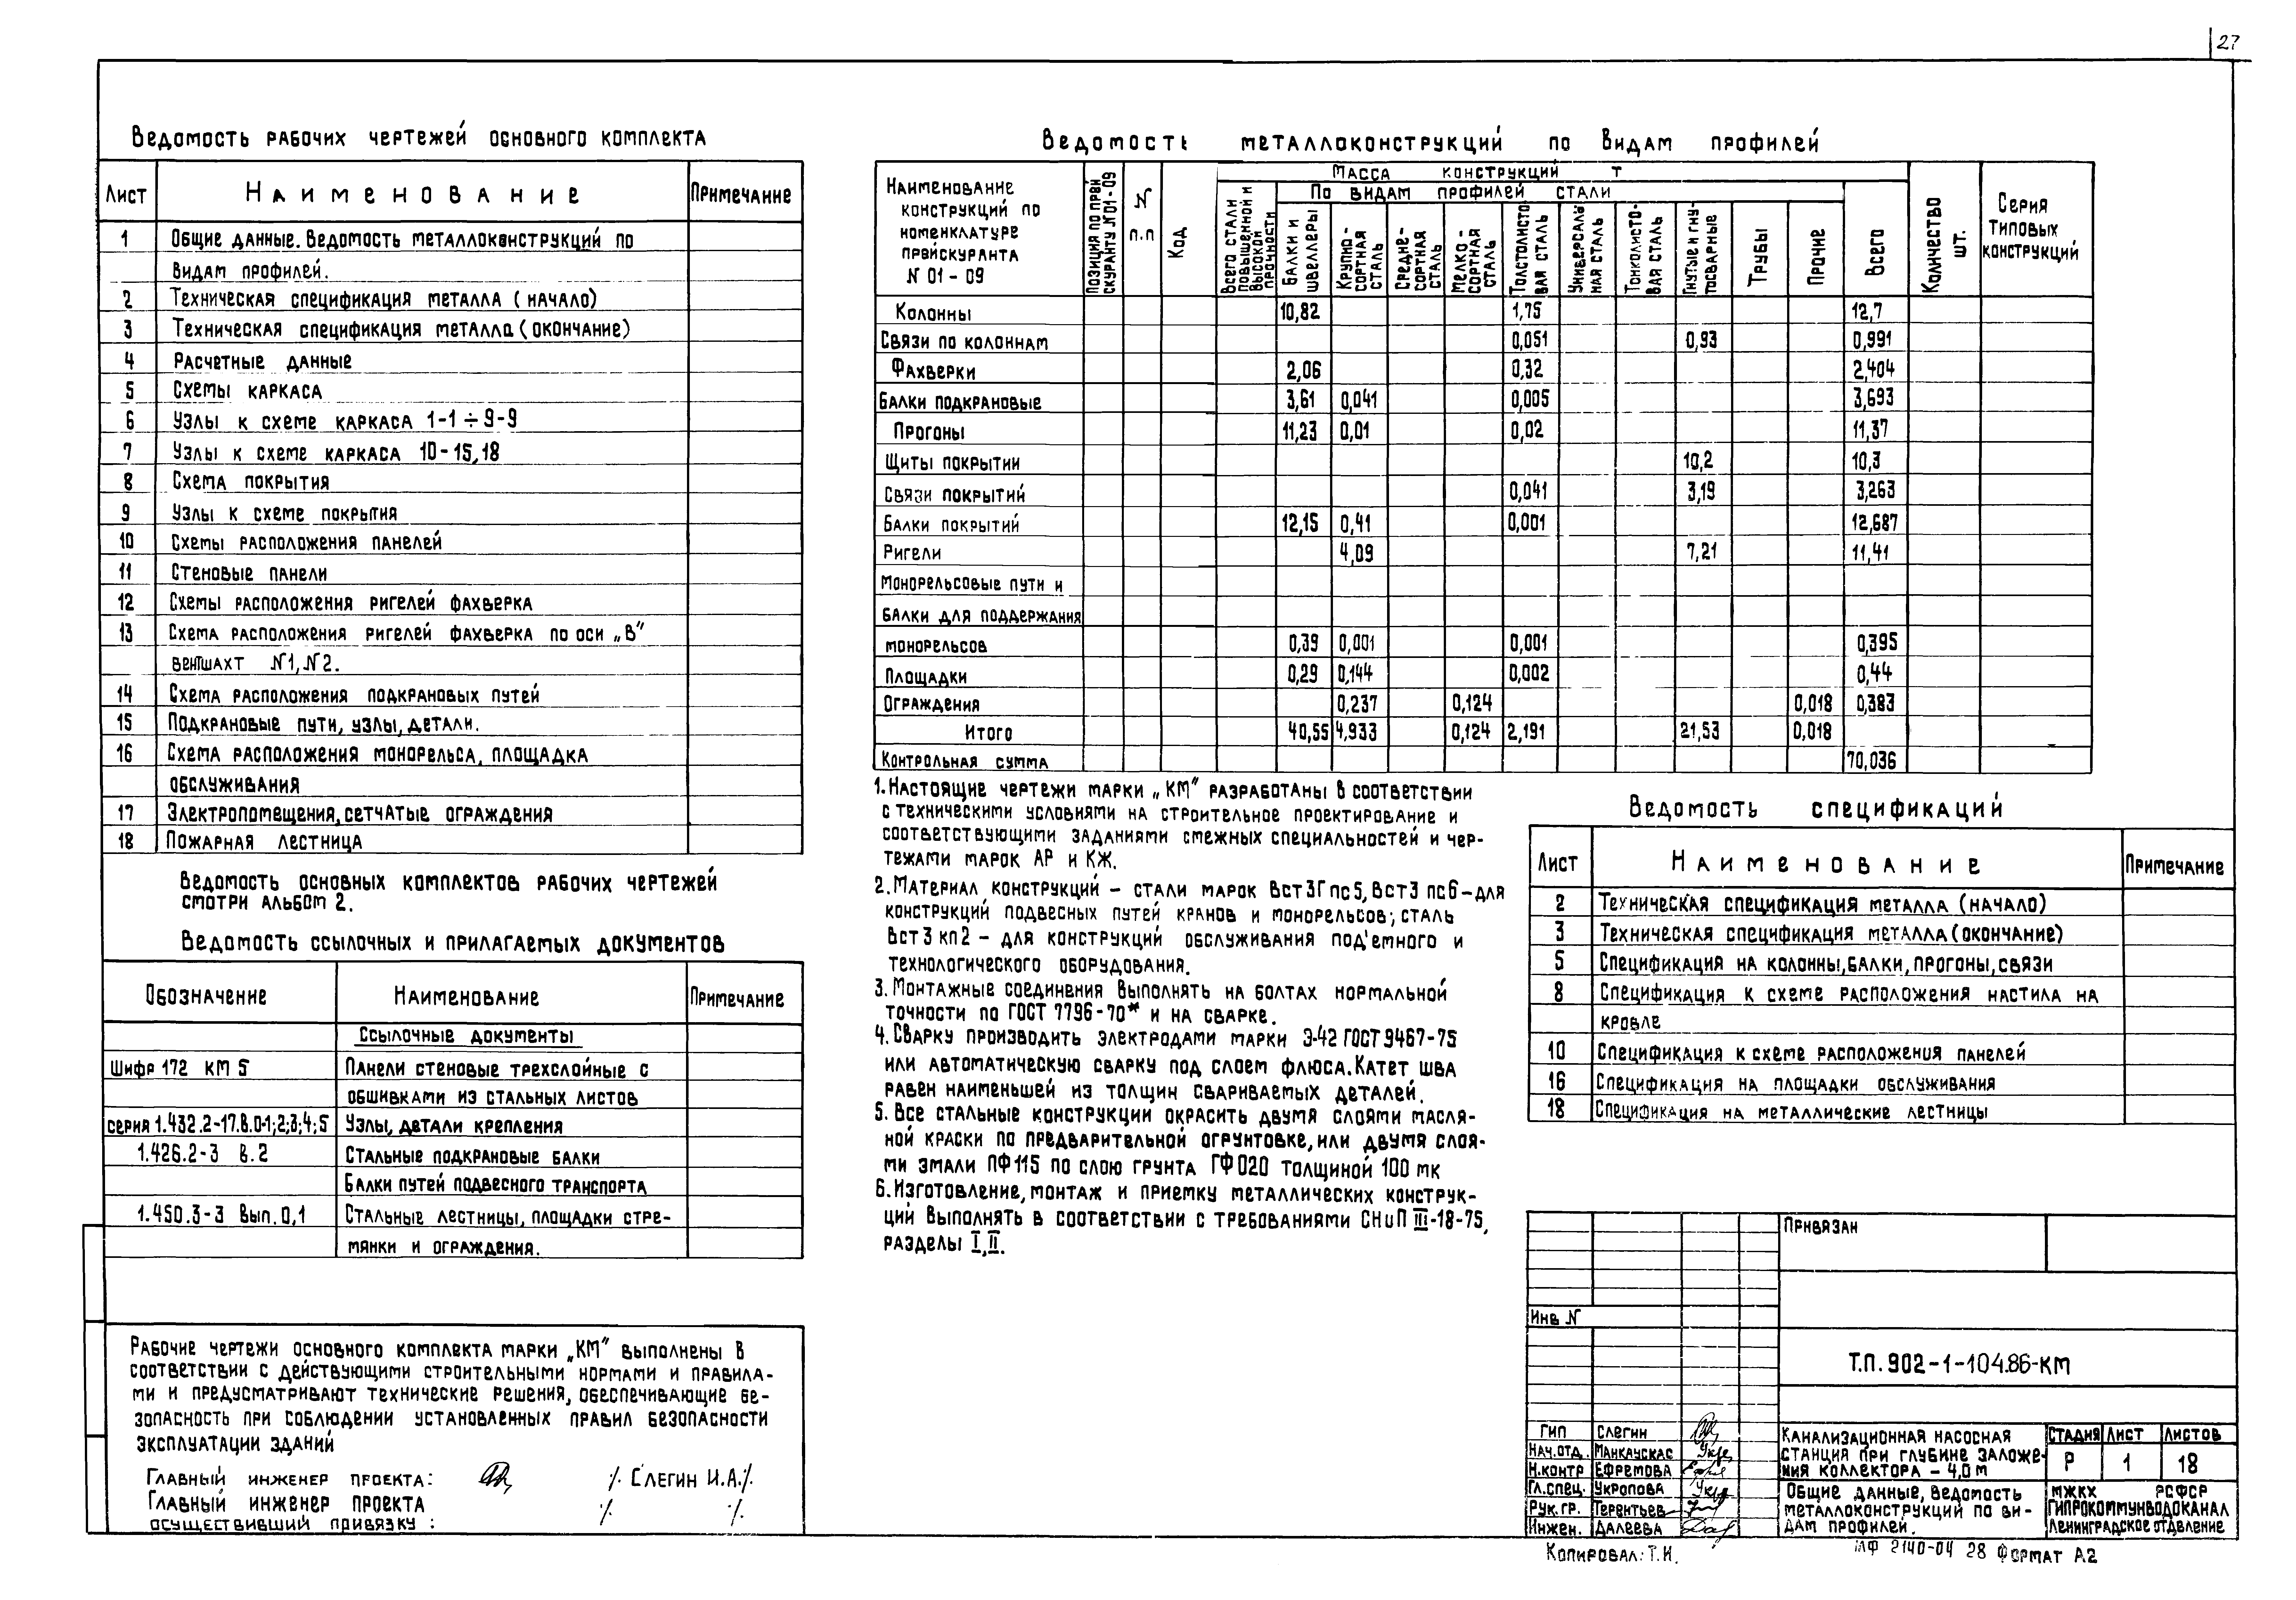 27
Ведомость рабочих чертежей основного комплекта
Лист Наименование Примечание
1 Общие данные. Ведомость металлоконструкций по
видам профилей.
2 Техническая спецификация металла (начало)
3 Техническая спецификация металла (окончание)
4 Расчетные данные
5 Схемы каркаса
6 Узлы к схеме каркаса 1-1 ÷ 9-9
7 Узлы к схеме каркаса 10-15, 18
8 Схема покрытия
9 Узлы к схеме покрытия
10 Схемы расположения панелей
11 Стеновые панели
12 Схемы расположения ригелей фахверка
13 Схема расположения ригелей фахверка по оси „В"
вентшахт N1, N2.
14 Схема расположения подкрановых путей
15 Подкрановые пути, узлы, детали.
16 Схема расположения монорельса, площадка
обслуживания
17 Электропомещения, сетчатые ограждения
18 Пожарная лестница
Ведомость основных комплектов рабочих чертежей
смотри альбом 2.
Ведомость ссылочных и прилагаемых документов
Обозначение Наименование Примечание
Ссылочные документы
Шифр 172 КМ 5 Панели стеновые трехслойные с
обшивками из стальных листов
серия 1.432.2-17.В.0-1;2;3;4;5 Узлы, детали крепления
1.426.2-3 В.2 Стальные подкрановые балки
Балки путей подвесного транспорта
1.450.3-3 Вып.0,1 Стальные лестницы, площадки стре-
мянки и ограждения.
Рабочие чертежи основного комплекта марки „КМ" выполнены в
соответствии с действующими строительными нормами и правила-
ми и предусматривают технические решения, обеспечивающие бе-
зопасность при соблюдении установленных правил безопасности
эксплуатации зданий
Главный инженер проекта: /. Слегин И.А./.
Главный инженер проекта
осуществивший привязку : /. /.
Ведомость металлоконструкций по видам профилей
Наименование
конструкций по
номенклатуре
прейскуранта
N 01-09
Позиция по прей
скуранту N 01-09
N
п.п
Код
Масса конструкций т
Всего стали
повышенной и
высокой
прочности
По видам профилей стали
Балки и
швеллеры
Крупно-
сортная
сталь
Средне-
сортная
сталь
Мелко-
сортная
сталь
Толстолисто
вая сталь
Универсаль
ная сталь
Тонколисто-
вая сталь
Гнутые и гну-
тосварные
Трубы
Прочие
Всего
Количество
шт.
Серия
типовых
конструкций
Колонны 10,82 1,75 12,7
Связи по колоннам 0,051 0,93 0,991
Фахверки 2,06 0,32 2,404
Балки подкрановые 3,61 0,041 0,005 3,693
Прогоны 11,23 0,01 0,02 11,37
Щиты покрытии 10,2 10,3
Связи покрытий 0,041 3,19 3,263
Балки покрытий 12,15 0,41 0,001 12,687
Ригели 4,09 7,21 11,41
Монорельсовые пути и
балки для поддержания
монорельсов 0,39 0,001 0,001 0,395
Площадки 0,29 0,144 0,002 0,44
Ограждения 0,237 0,124 0,018 0,383
Итого 40,55 4,933 0,124 2,191 21,53 0,018
Контрольная сумма 70,036
1. Настоящие чертежи марки „КМ" разработаны в соответствии
с техническими условиями на строительное проектирование и
соответствующими заданиями смежных специальностей и чер-
тежами марок АР и КЖ.
2. Материал конструкций – стали марок Вст3Гпс5, Вст3 пс6 – для
конструкций подвесных путей кранов и монорельсов; сталь
Вст3 кп2 – для конструкций обслуживания под'емного и
технологического оборудования.
3. Монтажные соединения выполнять на болтах нормальной
точности по ГОСТ 7796-70* и на сварке.
4. Сварку производить электродами марки Э-42 ГОСТ 9467-75
или автоматическую сварку под слоем флюса. Катет шва
равен наименьшей из толщин свариваемых деталей.
5. Все стальные конструкции окрасить двумя слоями масля-
ной краски по предварительной огрунтовке, или двумя слоя-
ми эмали ПФ115 по слою грунта ГФ020 толщиной 100 мк
6. Изготовление, монтаж и приемку металлических конструк-
ций выполнять в соответствии с требованиями СНиП III-18-75,
разделы I, II.
Ведомость спецификаций
Лист Наименование Примечание
2 Техническая спецификация металла (начало)
3 Техническая спецификация металла (окончание)
5 Спецификация на колонны, балки, прогоны, связи
8 Спецификация к схеме расположения настила на
кровле
10 Спецификация к схеме расположения панелей
16 Спецификация на площадки обслуживания
18 Спецификация на металлические лестницы
Привязан
Инв N
Т.П. 902-1-104.86-КМ
ГИП Слегин
Нач.отд. Манкаускас
Н.контр Ефремова
Гл.спец. Укропова
Рук.гр. Терентьев
Инжен. Далеева
Канализационная насосная
станция при глубине заложе-
ния коллектора – 4,0 м
Стадия Лист Листов
Р 1 18
Общие данные, ведомость
металлоконструкций по ви-
дам профилей.
МЖКХ РСФСР
Гипрокоммунводоканал
Ленинградское отделение
Копировал: Т.И.
МФ 2140-04 28 Формат А2